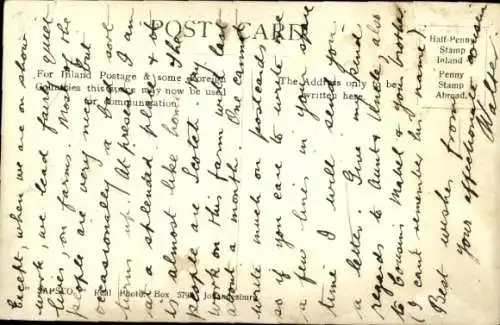 POST CARD
For Inland Postage & some Foreign
Countries this space may now be used
for Communication.
The Address only to be
written here.
Half-Penny
Stamp
Inland
Penny
Stamp
Abroad.
"SAPSCO" Real Photo, Box 5792, Johannesburg
Except, when we are on show
work, we lead fairly quiet
lives, on farms. Most of the
people are very nice, but
occasionally a bad one
turns up. At present I am
at a splended place, & it
is almost like home. The
people are Scotch. My last
work on this farm will last
about a month. One cannot
write much on postcards
so if you care to write me
a few lines in your spare
time I will send you
a letter. Give my kind
regards to Aunt & Uncle, also
to Cousin Mabel & your brother
(I can't remember his name)
Best wishes from
your affectionate cousin
Willie